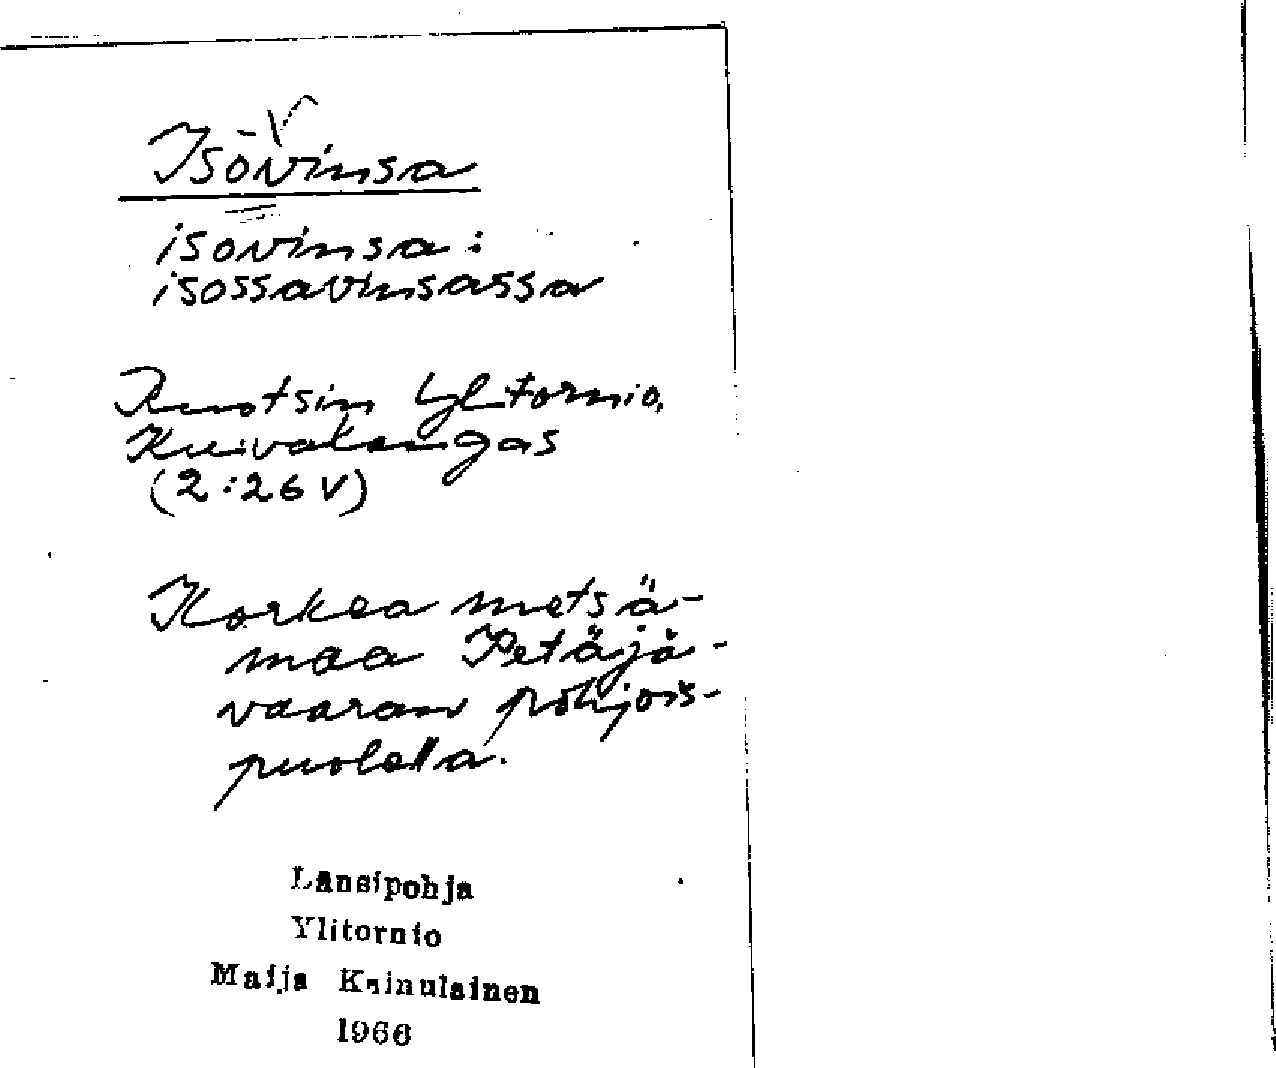 Isovinsa
isovinsa:
isossavinsassa
Ruotsin Ylitornio,
Kuivakangas
(2:26 V)
Korkea metsä-
maa Petäjä-
vaaran pohjois-
puolella.
Länsipohja
Ylitornio
Maija Kainulainen
1966